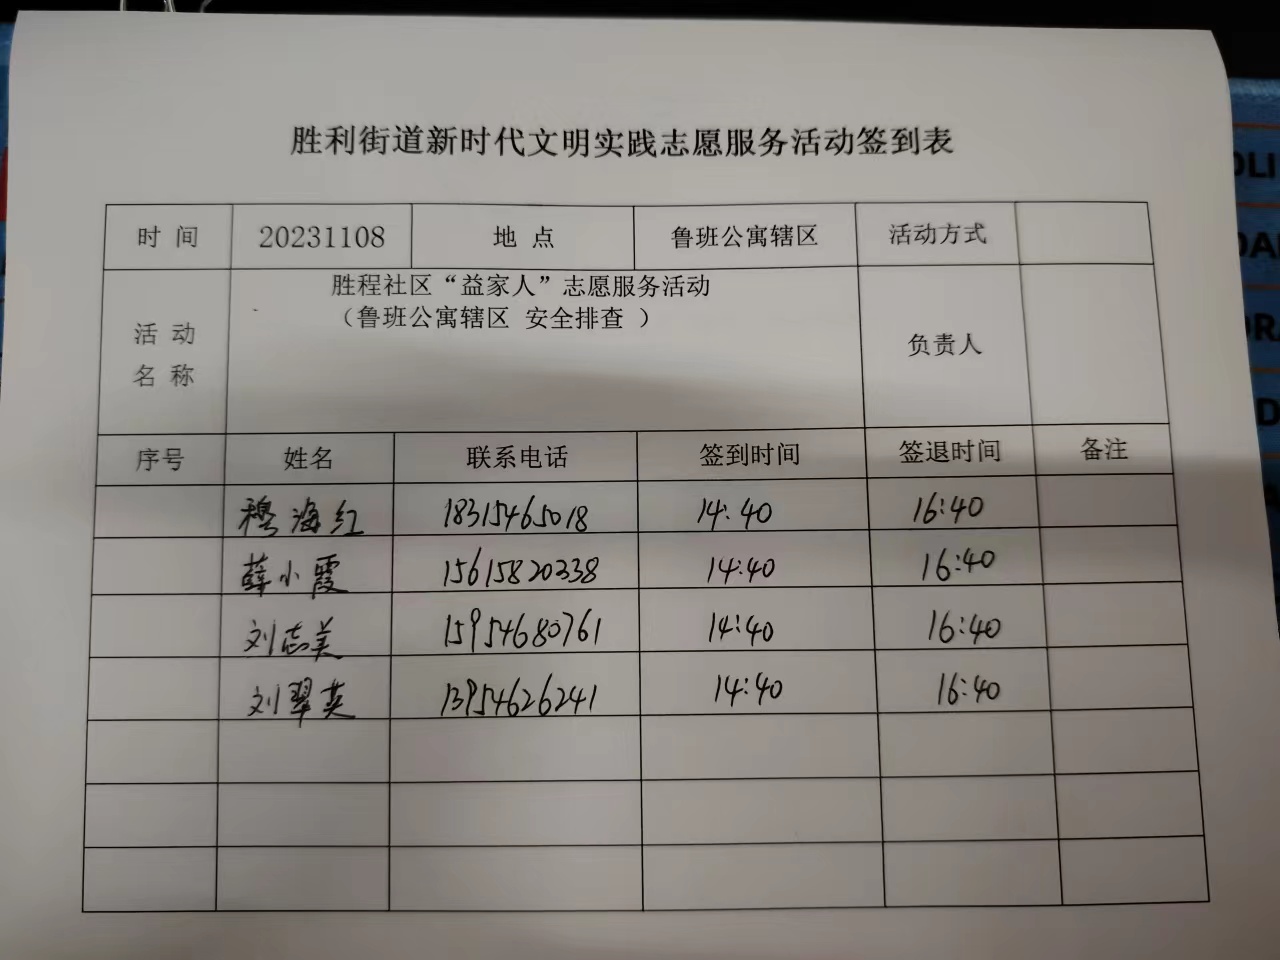 胜利街道新时代文明实践志愿服务活动签到表
时 间 20231108 地 点 鲁班公寓辖区 活动方式
活 动 名 称 胜程社区“益家人”志愿服务活动
（鲁班公寓辖区 安全排查 ）
负责人
序号 姓名 联系电话 签到时间 签退时间 备注
穆海红 18315465018 14:40 16:40
薛小霞 15615820338 14:40 16:40
刘志美 15954680761 14:40 16:40
刘翠英 13954626241 14:40 16:40
OLI